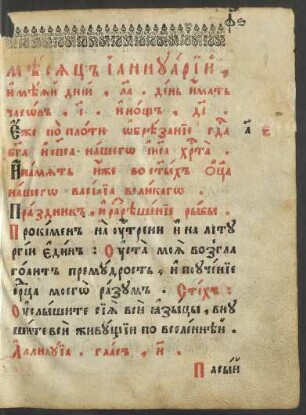 фѕ
мѣсяцъ іаннуарїй ,
имѣяй днїй , ла . день имать
часовъ , і . и нощъ , ді .
Еже по плоти ѡбрѣзанїе гд҃а
бг҃а и сп҃са нашегѡ іи҃са хрт҃а .
И память иже во ст҃ыхъ ѻц҃а
нашегѡ васілїа великагѡ .
Праздникъ , и раꙁрѣшенїе рыбы .
Прокименъ на оутрени и на літꙋ
ргїи єдинъ : Оуста моя возгла
голютъ премꙋдрость , и поученїе
срц҃а моегѡ разꙋмъ . Стїхъ :
Оуслышите сїѧ всѝ ꙗзыцы , внꙋ
шите вси живꙋщїи по вселеннѣй .
Аллилꙋїа . гласъ , и .
Пасый